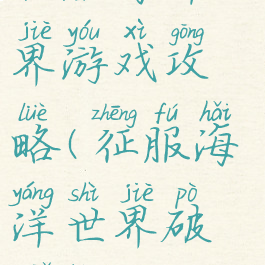 jiè yóu xì gōng
界游戏攻
lüè zhēng fú hǎi
略(征服海
yáng shì jiè pò
洋世界破